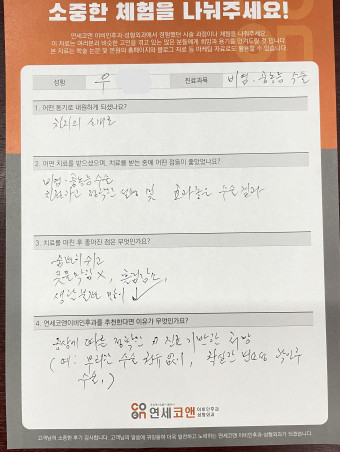 소중한 체험을 나눠주세요!
연세코앤 이비인후과·성형외과에서 경험했던 시술 과정이나 체험을 나눠주세요.
이 치료는 여러분과 비슷한 고민을 갖고 있는 많은 분들에게 희망과 용기를 안겨드릴 것 입니다.
본 치료는 학술 논문 및 본원의 홈페이지와 블로그 치료 등 마케팅 자료로도 활용될 수 있습니다.
성함 우 진료과목 비염·콧농증 수술
1. 어떤 동기로 내원하게 되셨나요?
2. 어떤 치료를 받으셨으며, 치료를 받는 중에 어떤 점들이 좋았었나요?
비염·축농증수술
정확한 설명 및 효과좋은 수술결과
3. 치료를 마친 후 좋아진 점은 무엇인가요?
숨쉬기 쉬고
콧물막힘 X, 감소,
4. 연세코앤이비인후과를 추천한다면 이유가 무엇인가요?
증상에 따른 정확한 진료 처방
(예: 무리한 수술 권유 없이,
수술,)
CO&N 연세코앤 이비인후과 성형외과
고객님의 소중한 후기 감사합니다. 고객님의 말씀에 귀기울여 더욱 발전하고 노력하는 연세코앤 이비인후과·성형외과가 되겠습니다.